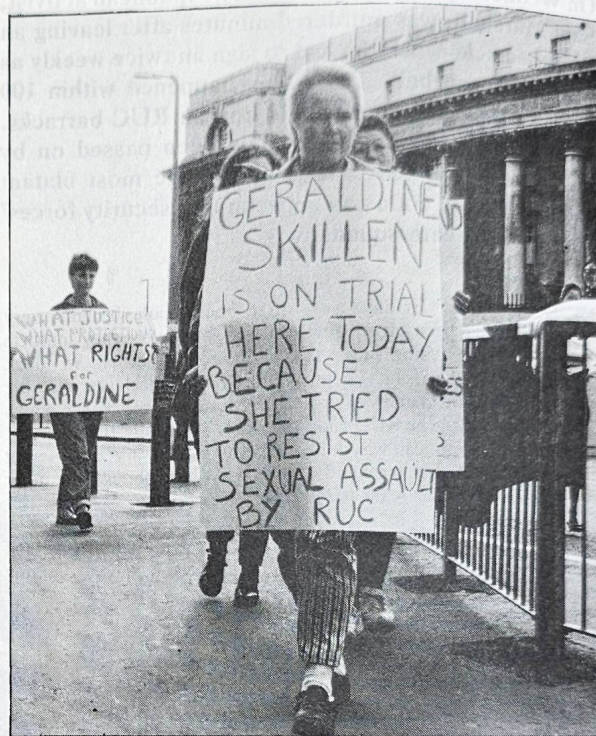 GERALDINE
SKILLEN
IS ON TRIAL
HERE TODAY
BECAUSE
SHE TRIED
TO RESIST
SEXUAL ASSAULT
BY RUC
WHAT JUSTICE
WHAT PROTECTION
WHAT RIGHTS?
FOR
GERALDINE